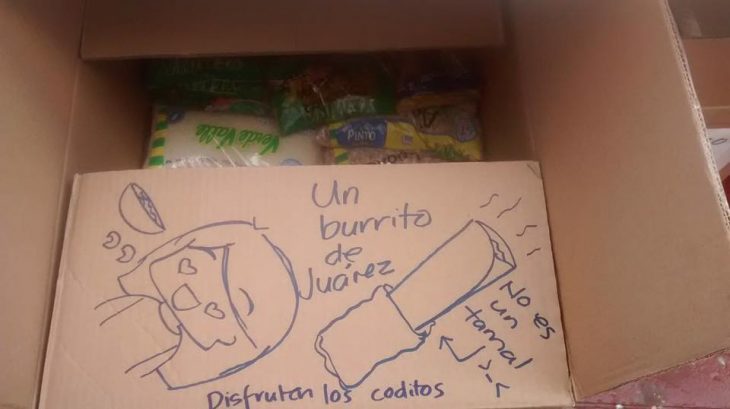 Verde Valle
PINTO
Un
burrito
de
Juárez
No es
un
tamal
>-<
Disfruten los coditos